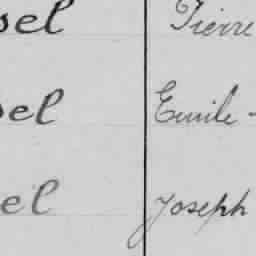 sel Pierre
sel Emile -
el Joseph